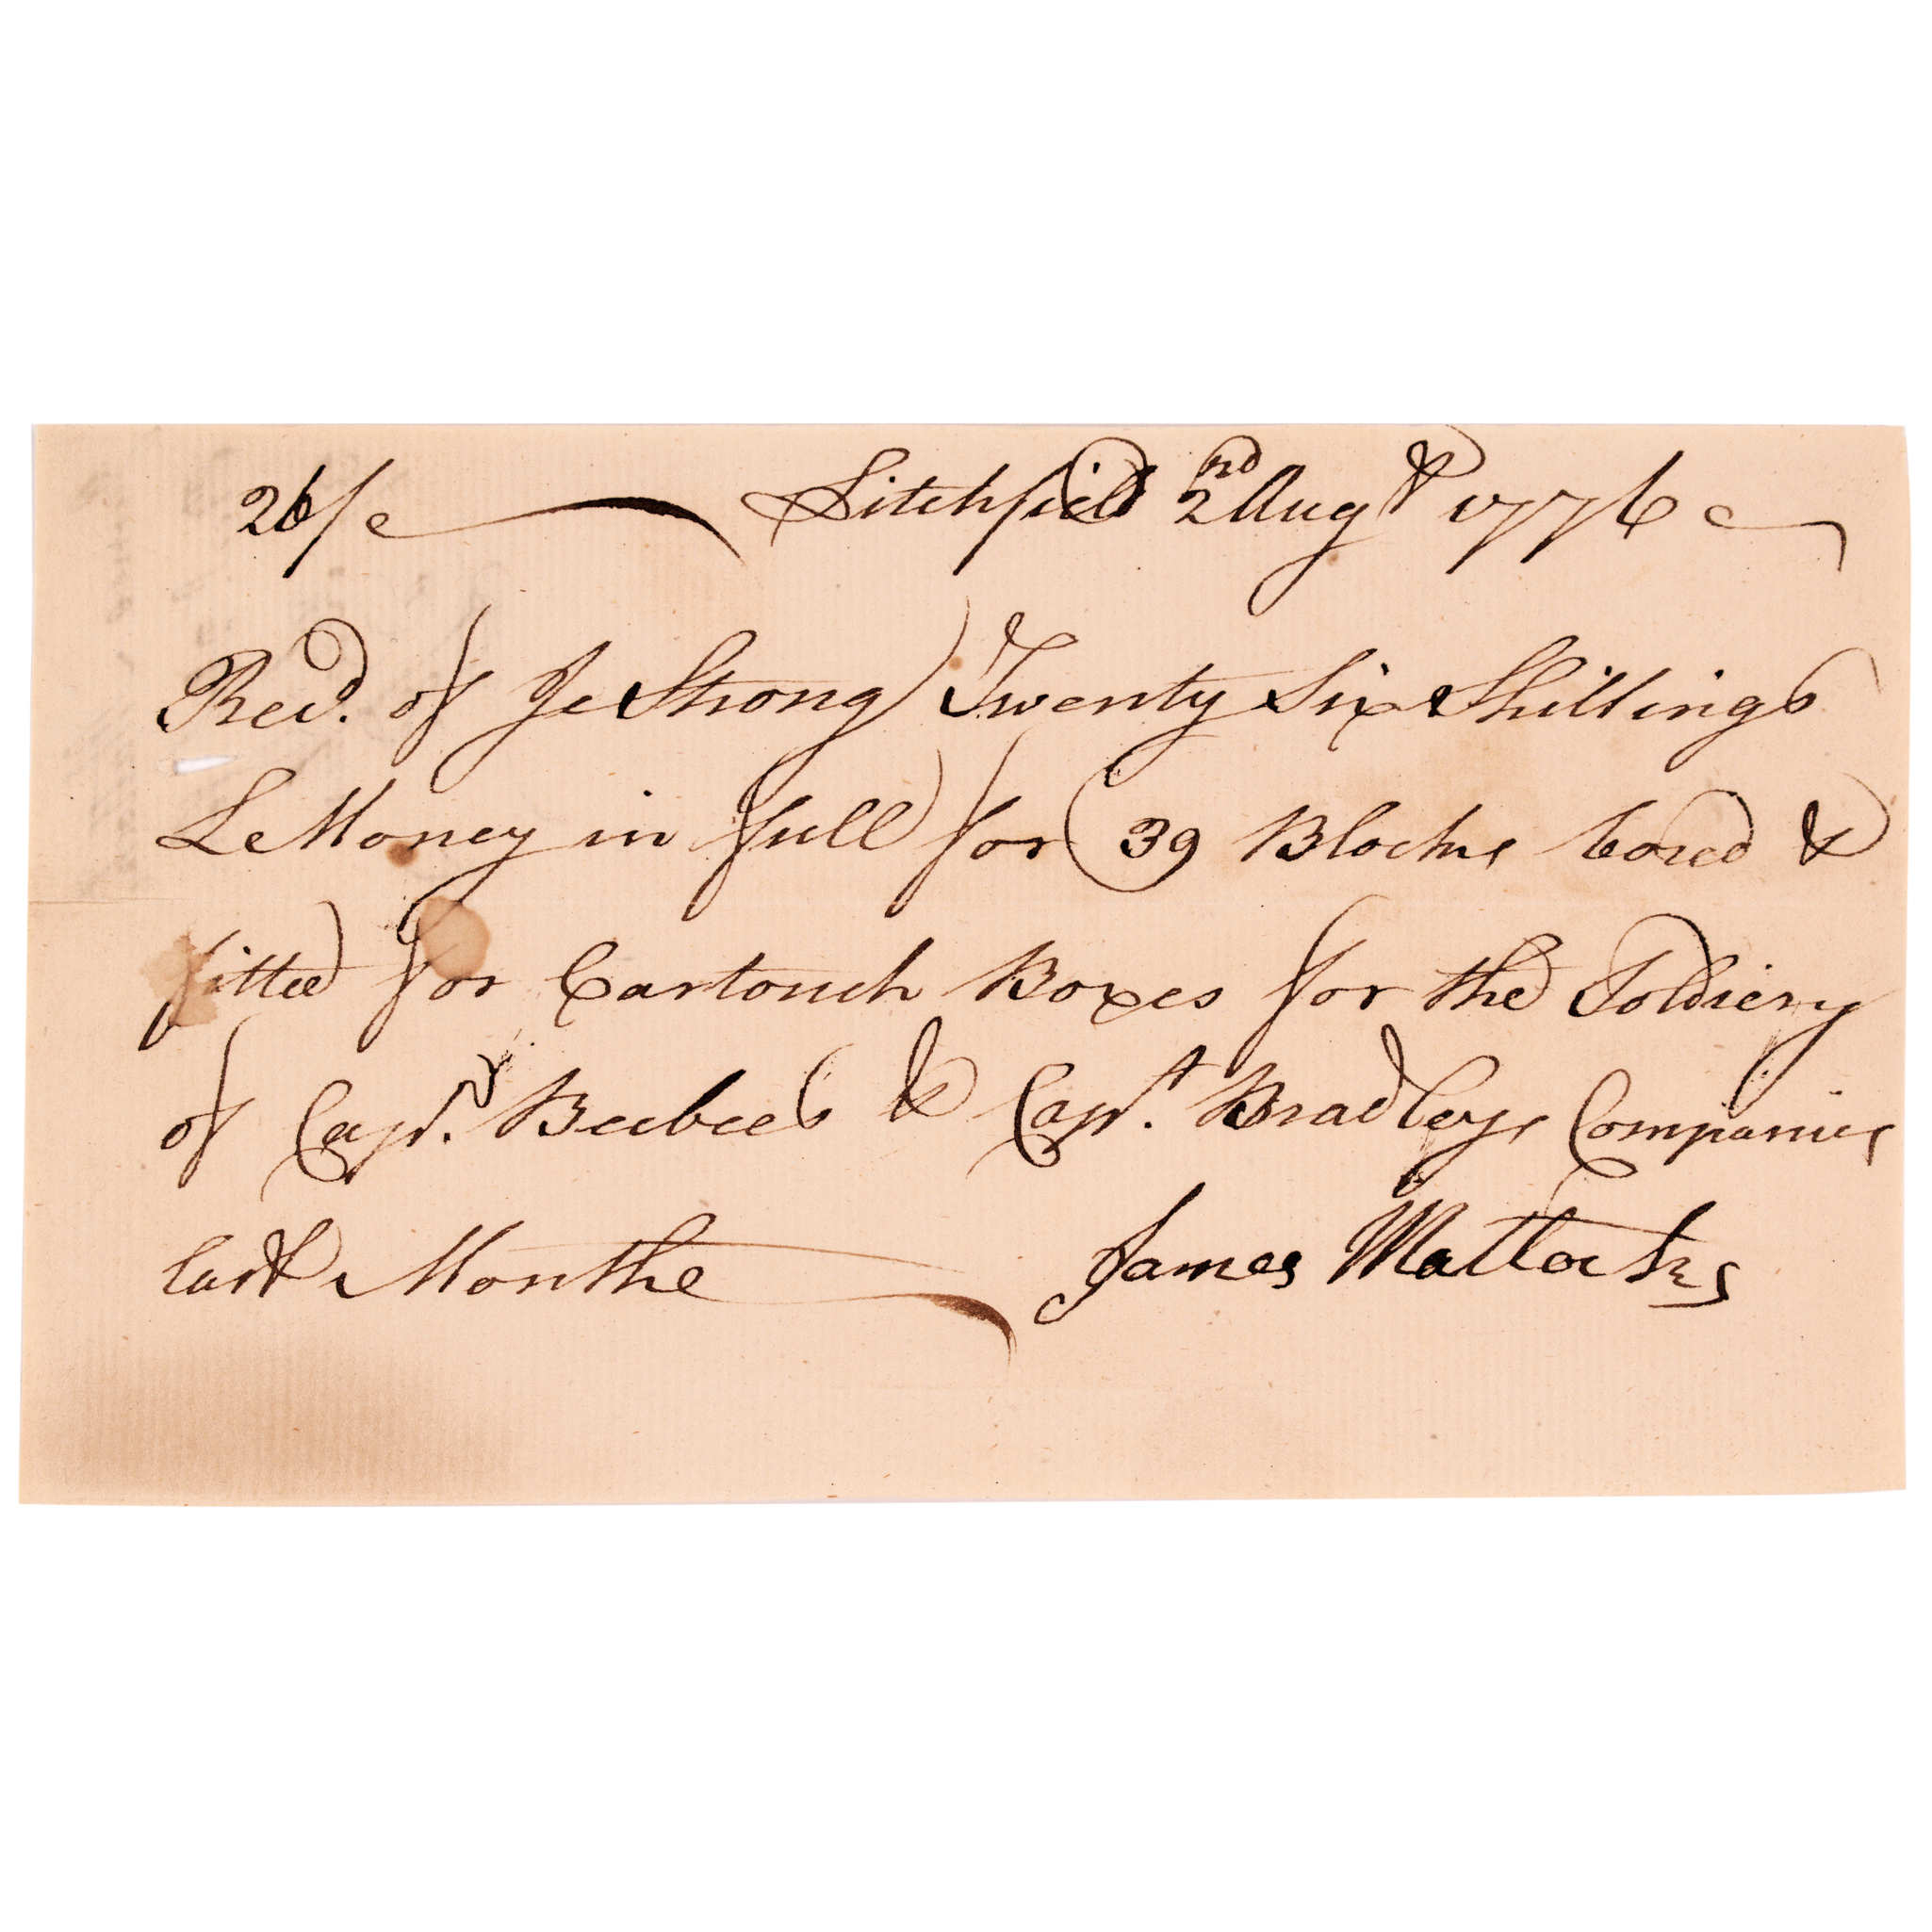 26/ Litchfield 2nd Augt 1776
Recd. of Je Strong Twenty Six Shillings
Le Money in full for 39 Blocks bored &
fitted for Cartouch Boxes for the Soldiery
of Capt. Beebees & Capt. Bradleys Companies
last Monthe James Mattocks